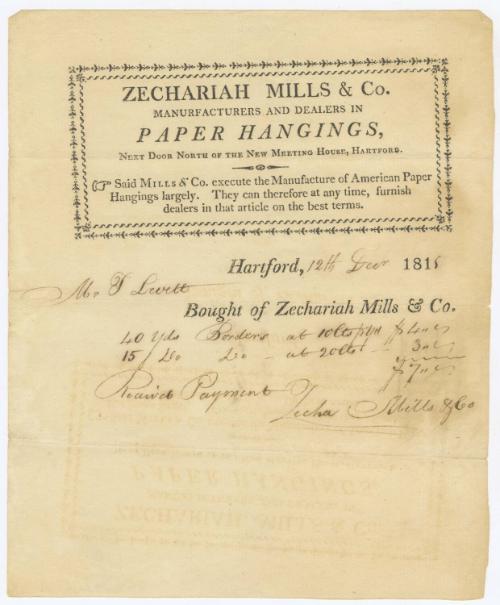 ZECHARIAH MILLS & Co.
MANURFACTURERS AND DEALERS IN
PAPER HANGINGS,
NEXT DOOR NORTH OF THE NEW MEETING HOUSE, HARTFORD.
☞ Said MILLS & Co. execute the Manufacture of American Paper
Hangings largely. They can therefore at any time, furnish
dealers in that article on the best terms.
Hartford, 12th Decr 1818
Mr T Levett
Bought of Zechariah Mills & Co.
40 Yds Borders at 10Cts
15 Do Do - at 20Cts
Receivd Payment
Zecha Mills & Co